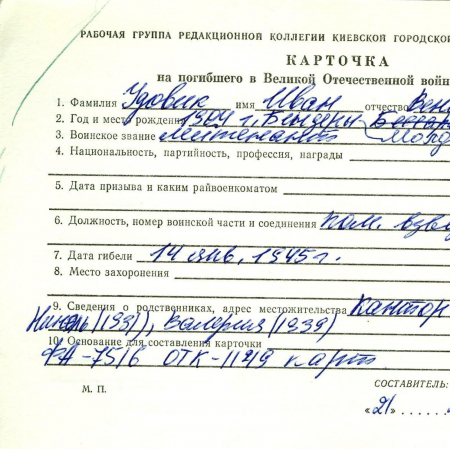 РАБОЧАЯ ГРУППА РЕДАКЦИОННОЙ КОЛЛЕГИИ КИЕВСКОЙ ГОРОДСКОЙ
КАРТОЧКА
на погибшего в Великой Отечественной войн
1. Фамилия Удовик имя Иван отчество Вени
2. Год и место рождения 1904 г. Бендеры Бессар
3. Воинское звание лейтенант Молд
4. Национальность, партийность, профессия, награды
5. Дата призыва и каким райвоенкоматом
6. Должность, номер воинской части и соединения ком. взво
7. Дата гибели 14 янв. 1945 г.
8. Место захоронения
9. Сведения о родственниках, адрес местожительства Кантор
Нинель (1931), Валерия (1939)
10. Основание для составления карточки
ФД-7516 ОТК-1129 карт
М. П.
СОСТАВИТЕЛЬ:
«21»